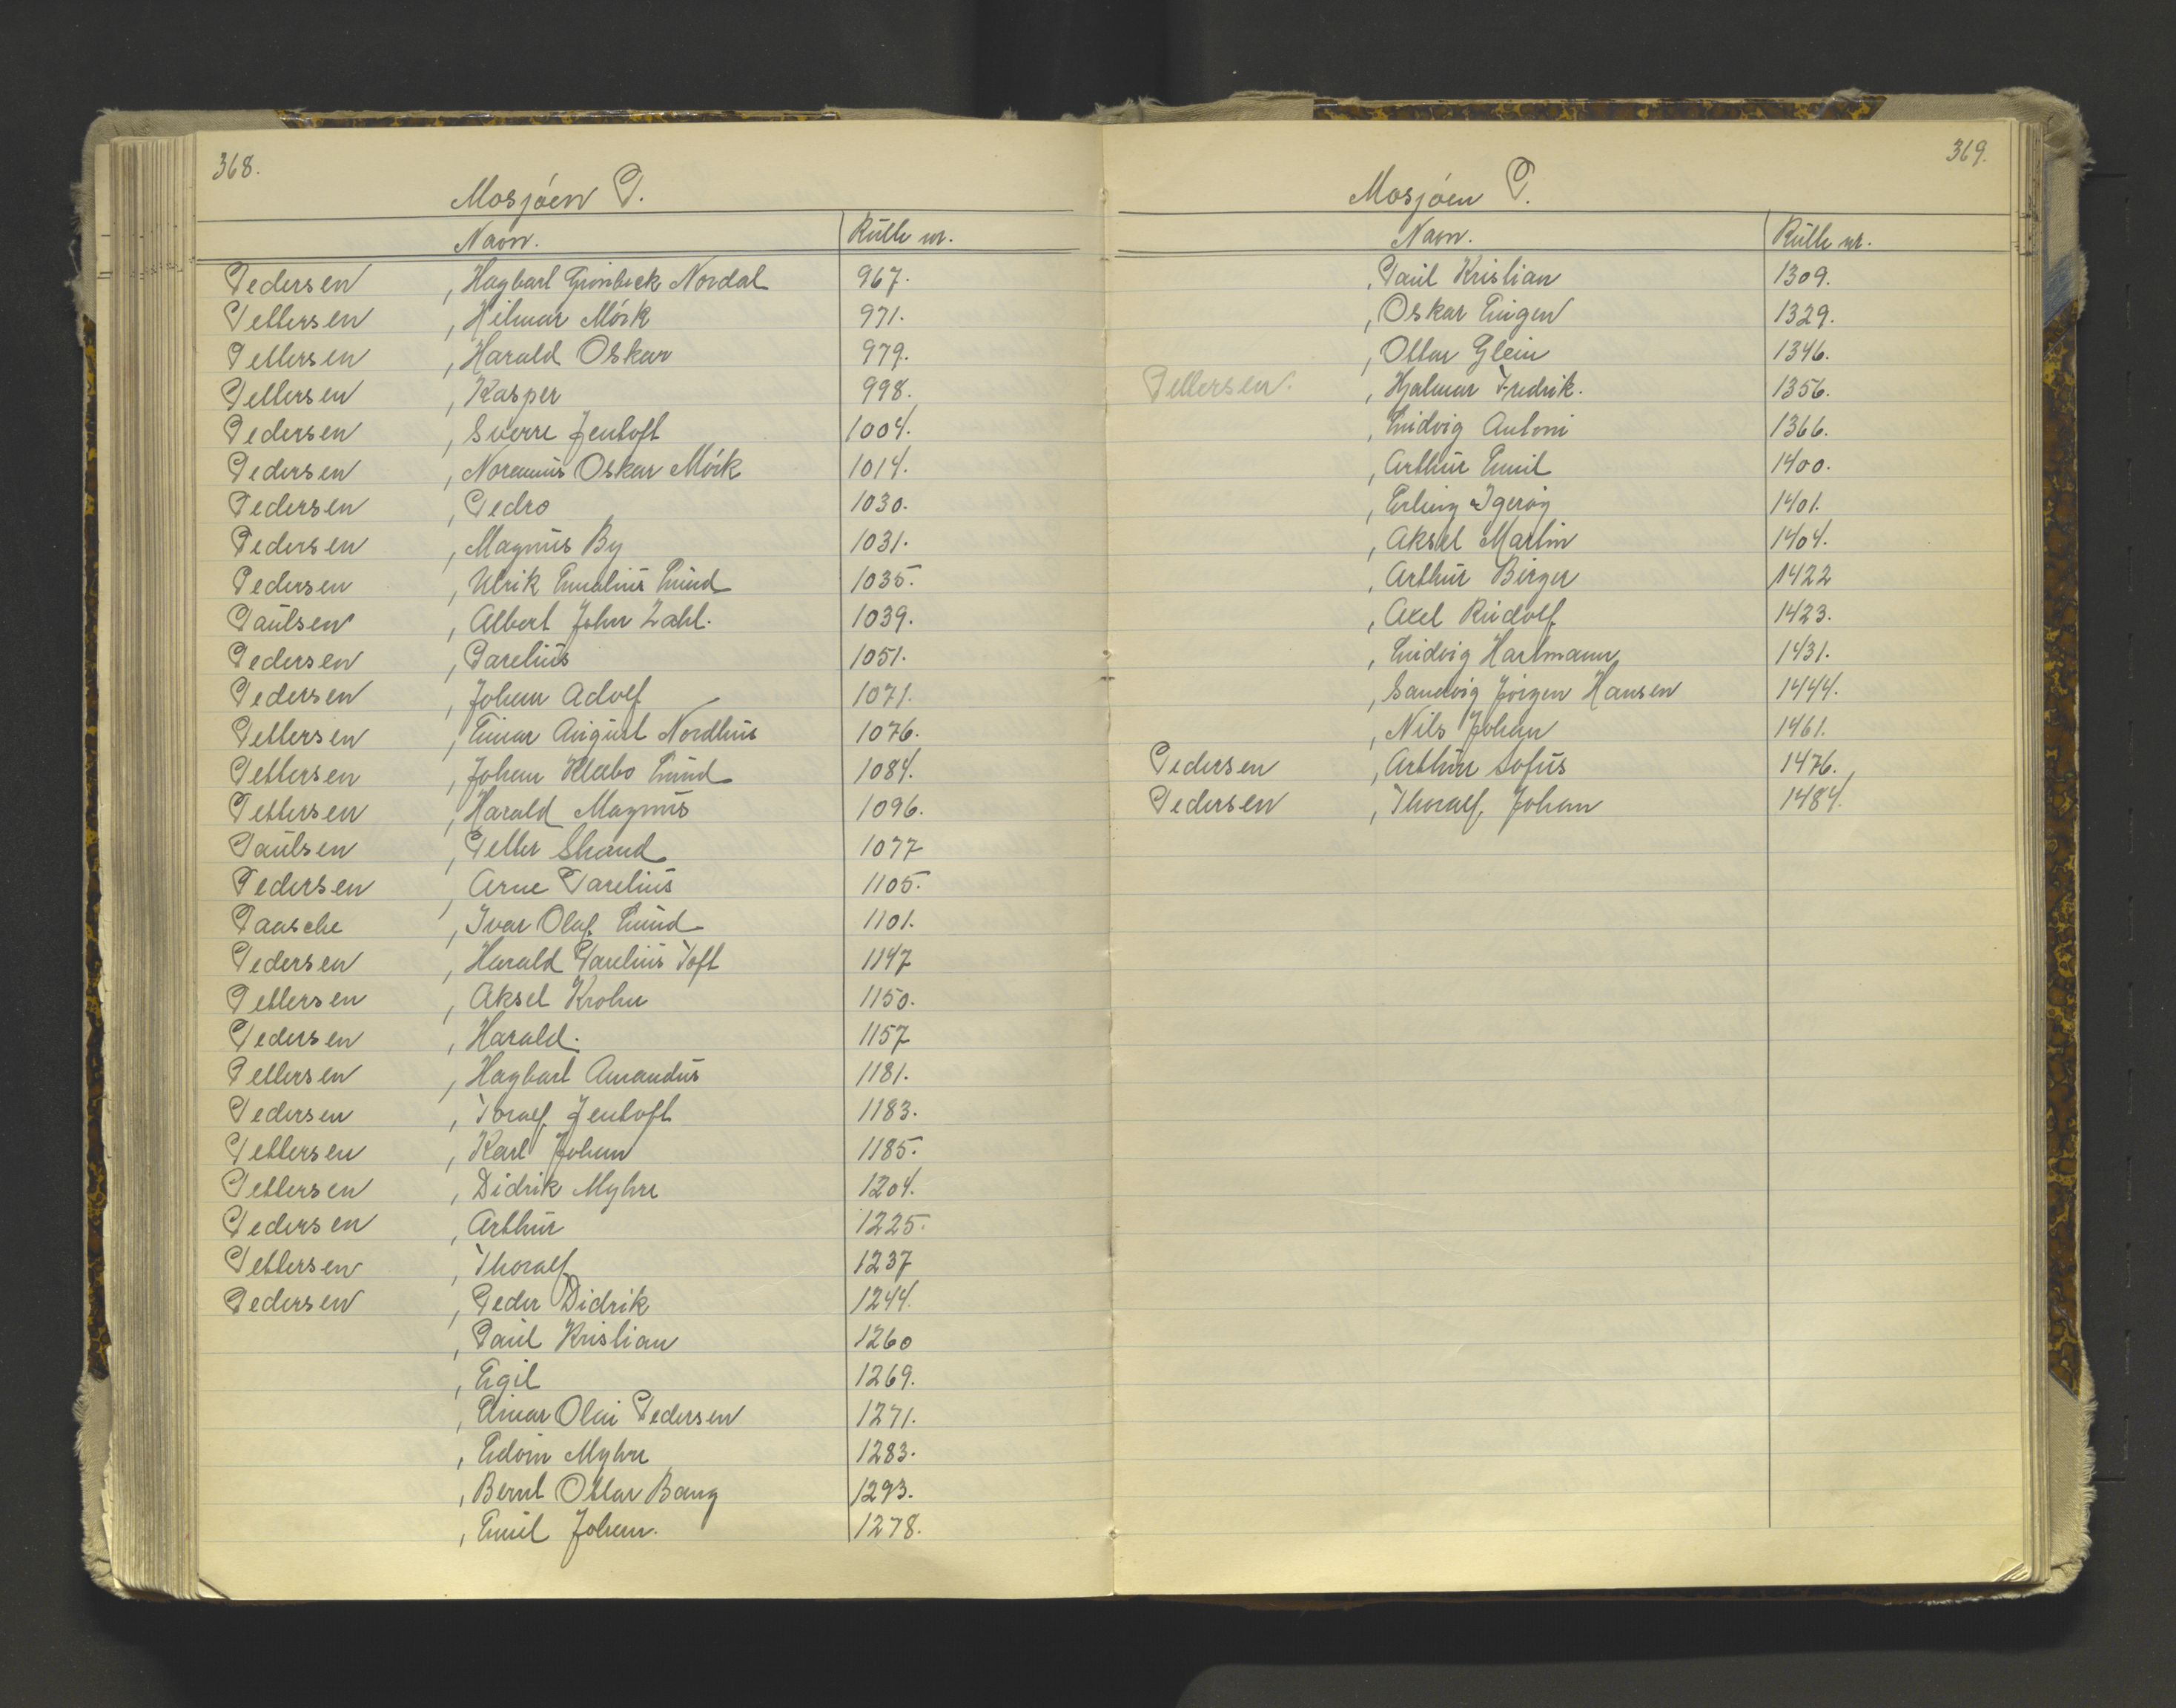 368.
Mosjøen P.
Navn. Rulle nr.
Pedersen , Hagbart Grönbeck Nordal 967.
Pettersen , Hilmar Mörk 971.
Pettersen , Harald Oskar 979.
Pettersen , Kasper 998.
Pedersen , Sverre Jentoft 1004.
Pedersen , Noremius Oskar Mörk 1014.
Pedersen , Pedro 1030.
Pedersen , Magnus By 1031.
Pedersen , Ulrik Lund 1035.
Paulsen , Albert John Zahl. 1039.
Pedersen , Parelius 1051.
Pedersen , Johan Adolf 1071.
Pettersen , Einar August Nordhus 1076.
Pettersen , Johan Klæbo Lund 1084.
Pettersen , Harald Magnus 1096.
Paulsen , Petter Strand 1077
Pedersen , Arne Parelius 1105.
Paasche , Ivar Olaf Lund 1101.
Pedersen , Harald Parelius Toft 1147
Pettersen , Aksel Krohn 1150.
Pedersen , Harald. 1157
Pettersen , Hagbart Amandus 1181.
Pedersen , Toralf Jentoft 1183.
Pettersen , Karl Johan 1185.
Pettersen , Didrik Myhre 1204.
Pedersen , Arthur 1225.
Pettersen , Thoralf 1237
Pedersen , Peder Didrik 1244.
, Paul Kristian 1260
, Egil 1269.
, Einar Olai Pedersen 1271.
, Edvin Myhre 1283.
, Bernt Ottar Bang 1293.
, Emil Johan. 1278.
369.
Mosjøen P.
Navn. Rulle nr.
, Paul Kristian 1309.
, Oskar Eugen 1329.
, Ottar Glein 1346.
Pettersen. , Hjalmar Fredrik. 1356.
, Ludvig Antoni 1366.
, Arthur Emil 1400.
, Erling Igerøy 1401.
, Aksel Martin 1404.
, Arthur Birger 1422
, Axel Rudolf 1423.
, Ludvig Hartmann 1431.
, Sandvig Jörgen Hansen 1444.
, Nils Johan 1461.
Pedersen , Arthur Sofus 1476.
Pedersen , Thoralf Johan 1484.